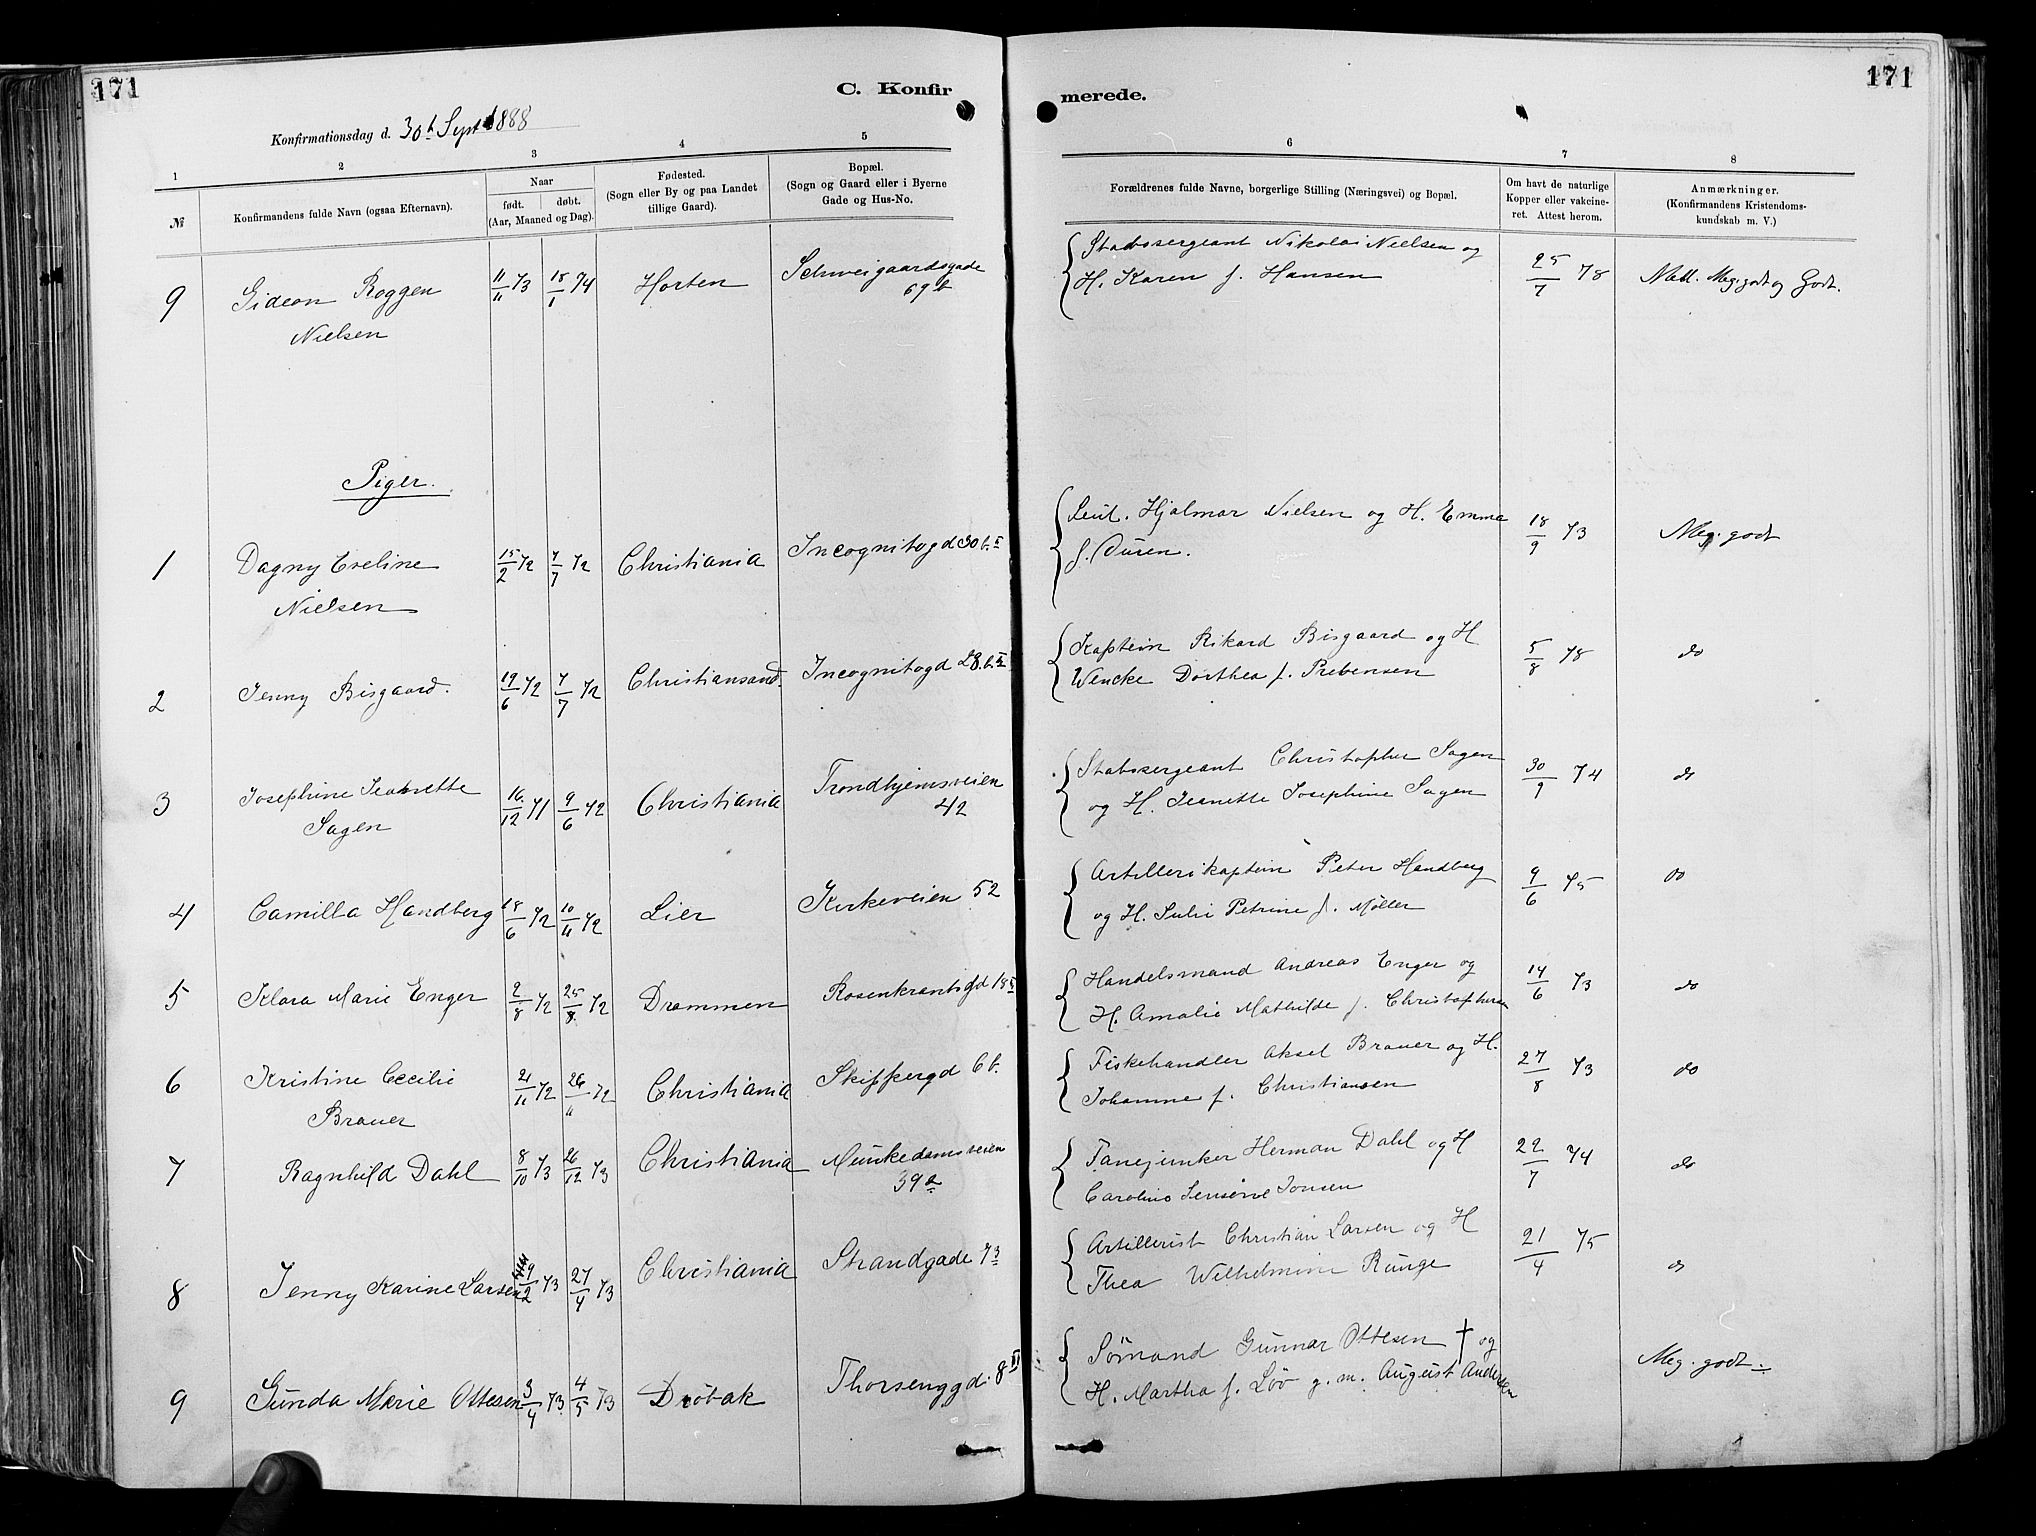 171
C. Konfirmerede.
171
Konfirmationsdag d. 30t Sept 1888
1 2 3 4 5 6 7 8
№
Konfirmandens fulde Navn (ogsaa Efternavn).
Naar
født. døbt.
(Aar, Maaned og Dag).
Fødested.
(Sogn eller By og paa Landet
tillige Gaard).
Bopæl.
(Sogn og Gaard eller i Byerne
Gade og Hus-No.
Forældrenes fulde Navne, borgerlige Stilling (Næringsvei) og Bopæl.
Om havt de naturlige
Kopper eller vakcine-
ret. Attest herom.
Anmærkninger.
(Konfirmandens Kristendoms-
kundskab m. V.)
9 Gideon Roggen 11/11 73 18/1 74 Horten Schweigaardsgade Stabssergeant Nikolai Nielsen og 25/7 78 Meg. godt og Godt.
Nielsen 67 b H. Karen f. Hansen
Piger.
1 Dagny Eveline 15/2 72 7/7 72 Christiania Incognitogd 30 b. II Leut. Hjalmar Nielsen og H. Emma 18/9 73 Meg. godt
Nielsen f. Duren.
2 Jenny Bisgaard. 19/6 72 7/7 72 Christiansand. Incognitogd 28. b. Kaptein Rikard Bisgaard og H 5/8 78 do
Wencke Dorthea f. Prebensen
3 Josephine Jeanette 16/12 71 9/6 72 Christiania Trondhjemsveien Stabssergeant Christopher Sagen 30/9 74 do
Sagen 42 og H. Jeanette Josephine Sagen
4 Camilla Handberg 18/6 72 10/11 72 Lier Kirkeveien 52 Artillerikaptein Peter Handberg 9/6 75 do
og H. Julie Petrine f. Møller
5 Klara Marie Enger 2/8 72 25/8 72 Drammen Rosenkrantsgd 18 Handelsmand Andreas Enger og 14/6 73 do
H. Amalie Mathilde f. Christophersen
6 Kristine Cecilie 21/11 72 26/11 72 Christiania Skippergd 6 b. Fiskehandler Aksel Brauer og H. 27/8 73 do
Brauer Johanne f. Christiansen
7 Ragnhild Dahl 8/10 73 26/12 73 Christiania Munkedamsveien Fanejunker Herman Dahl og H 22/7 74 do
39 a Caroline Jensine Jonsen
8 Jenny Karine Larsen 9/2 73 27/4 73 Christiania Strandgade 73 Artillerist Christian Larsen og H 21/4 75 do
Thea Wilhelmine Runge
9 Gunda Marie Ottesen 3/4 73 4/5 73 Drøbak Thorsenggd. 8 II Sømand Gunnar Ottesen † og Meg. godt
H. Martha f. Löv g. m. August Andersen